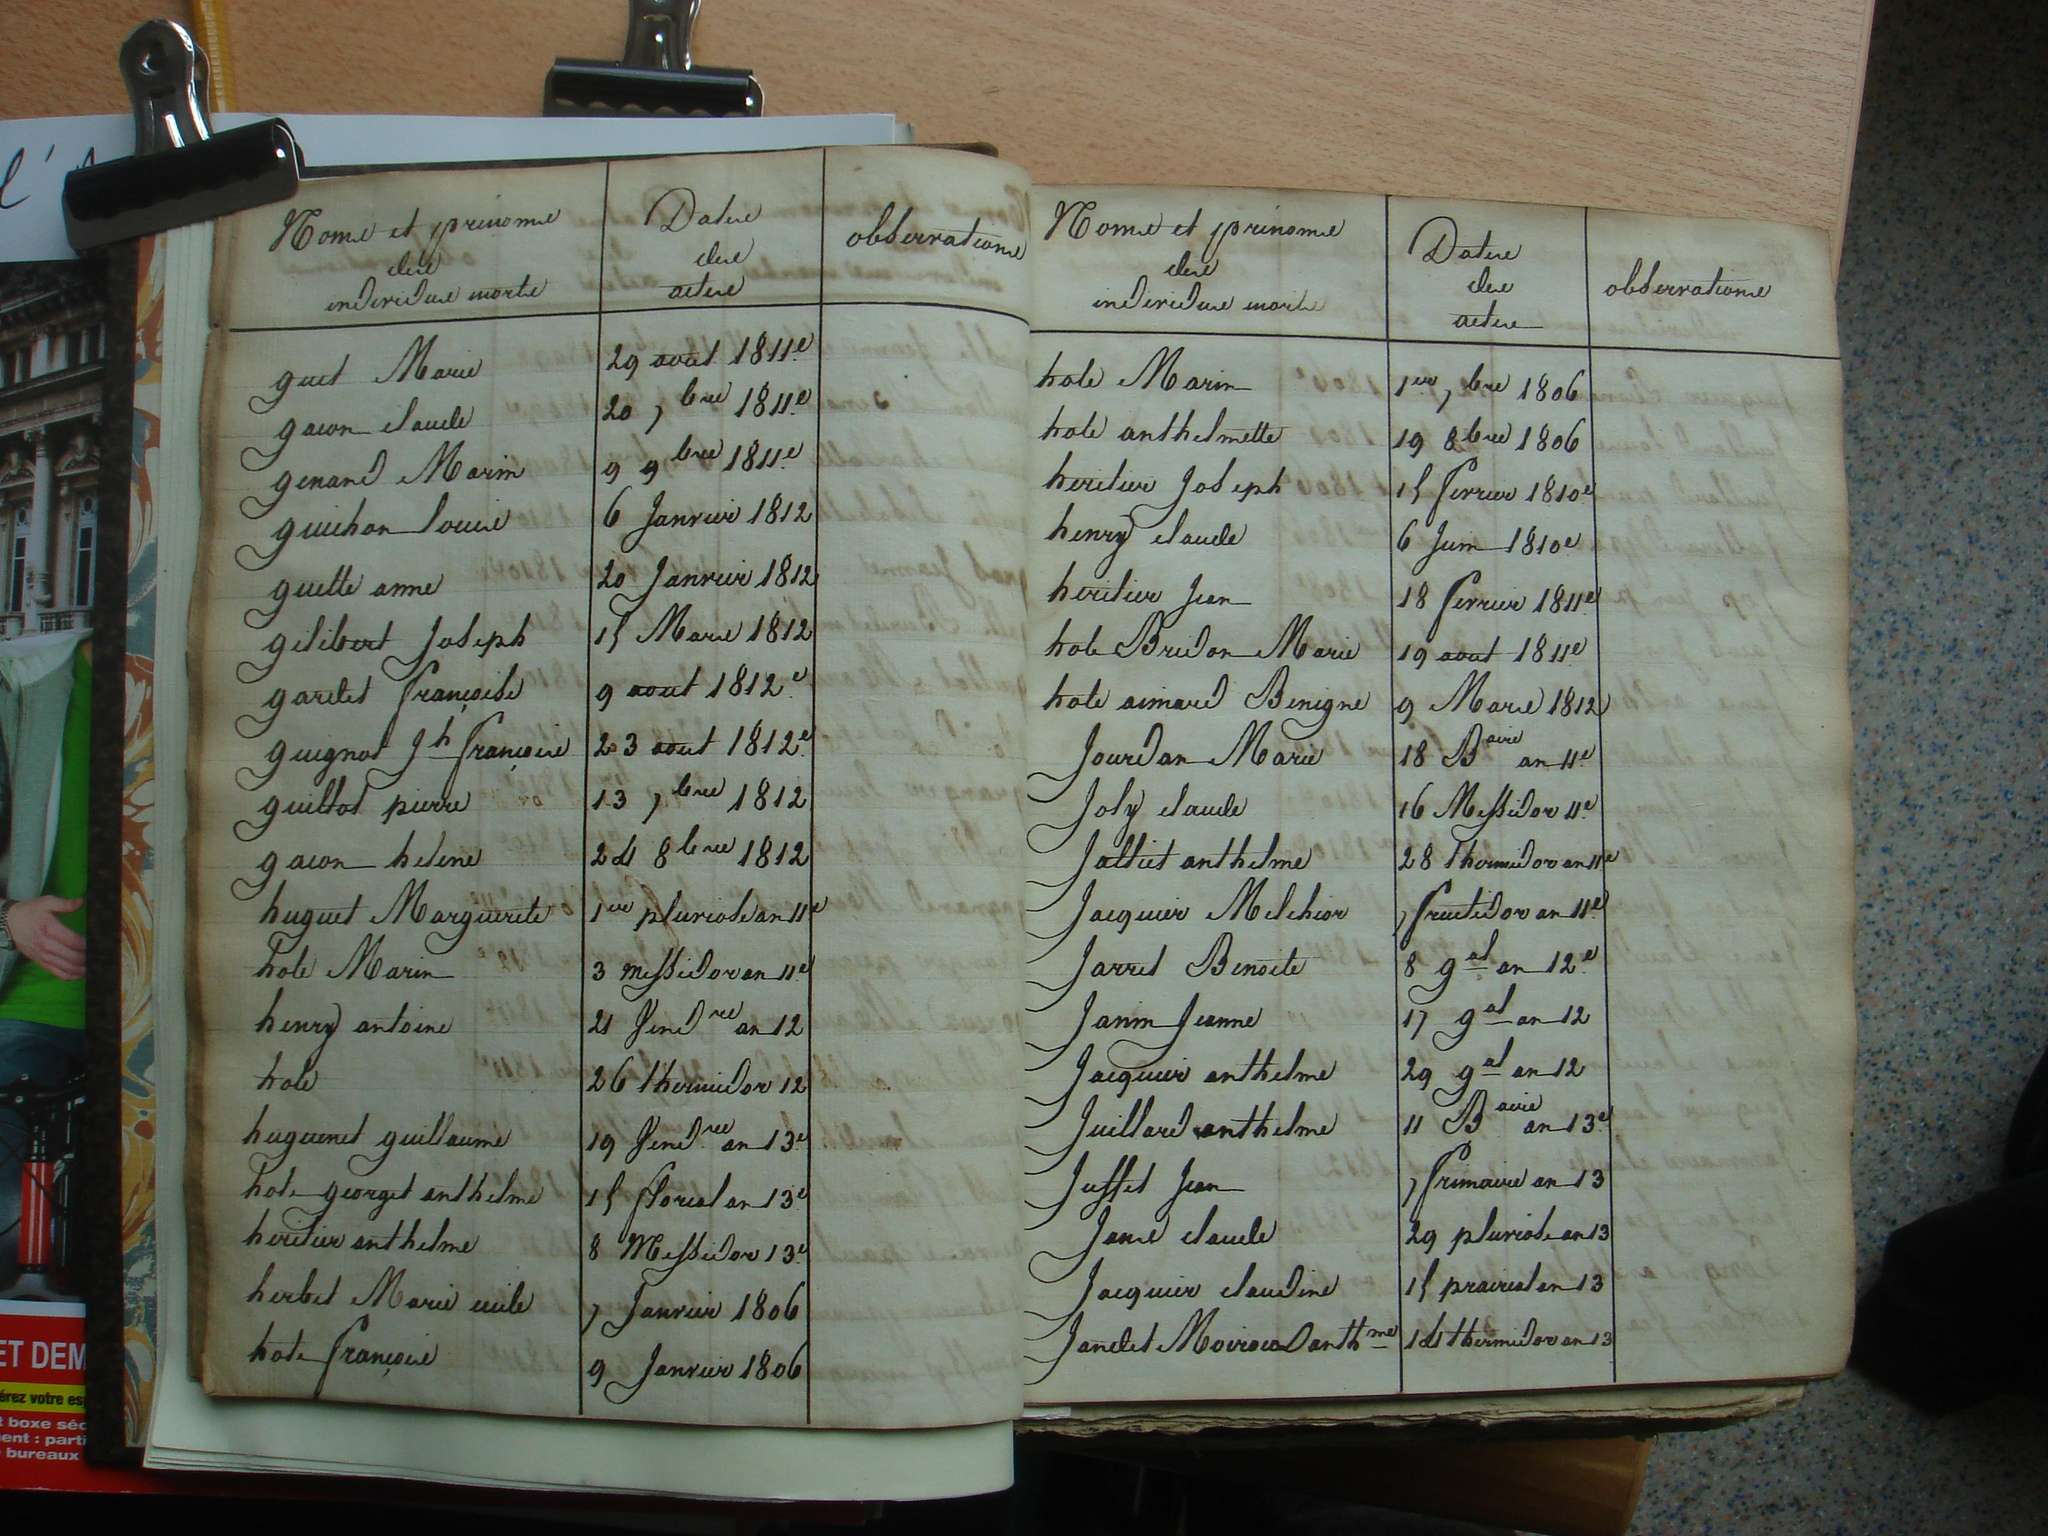 l'
Noms et prénoms
des
individus morts
Dates
des
actes
observations
guet Marie 29 aout 1811e
gacon claude 20 7bre 1811e
genand Marin 9 9bre 1811e
guichon louise 6 Janvier 1812
guette anne 20 Janvier 1812
gilibert Joseph 15 Mars 1812
gardet françoise 9 aout 1812e
guignot Jh françois 23 aout 1812e
guillot pierre 13 7bre 1812
gacon helene 24 8bre 1812
huguet Marguerite 1er pluviose an 11e
hote Marin 3 messidor an 11e
henry antoine 21 Vendre an 12
hote 26 thermidor 12
huguenet guillaume 19 Vendre an 13e
hote georget anthelme 15 floreal an 13e
heritier anthelme 8 Messidor 13e
herbet Marie 7 Janvier 1806
hote françoise 9 Janvier 1806
Noms et prénoms
des
individus morts
Dates
des
actes
observations
hote Marin 1er 7bre 1806
hote anthelmette 19 8bre 1806
heritier Joseph 15 fevrier 1810e
henry claude 6 Juin 1810e
heritier Jean 18 fevrier 1811e
hote Bridon Marie 19 aout 1811e
hote aimard Benigne 9 Mars 1812
Jourdan Marie 18 Baire an 11e
Joly claude 16 Messidor 11e
Jalliet anthelme 28 thermidor an 11e
Jacquier Melchior 7 fructidor an 11e
Jarret Benoite 8 gal an 12e
Janin Jeanne 17 gal an 12
Jacquier anthelme 29 gal an 12
Juillard anthelme 11 Baire an 13e
Juffet Jean 7 frimaire an 13
Jand claude 29 pluviose an 13
Jacquier claudine 15 prairial an 13
Jandet Moiroud anthme 14 thermidor an 13
ET DEM
érez votre es
t boxe séc
ent : parti
bureaux